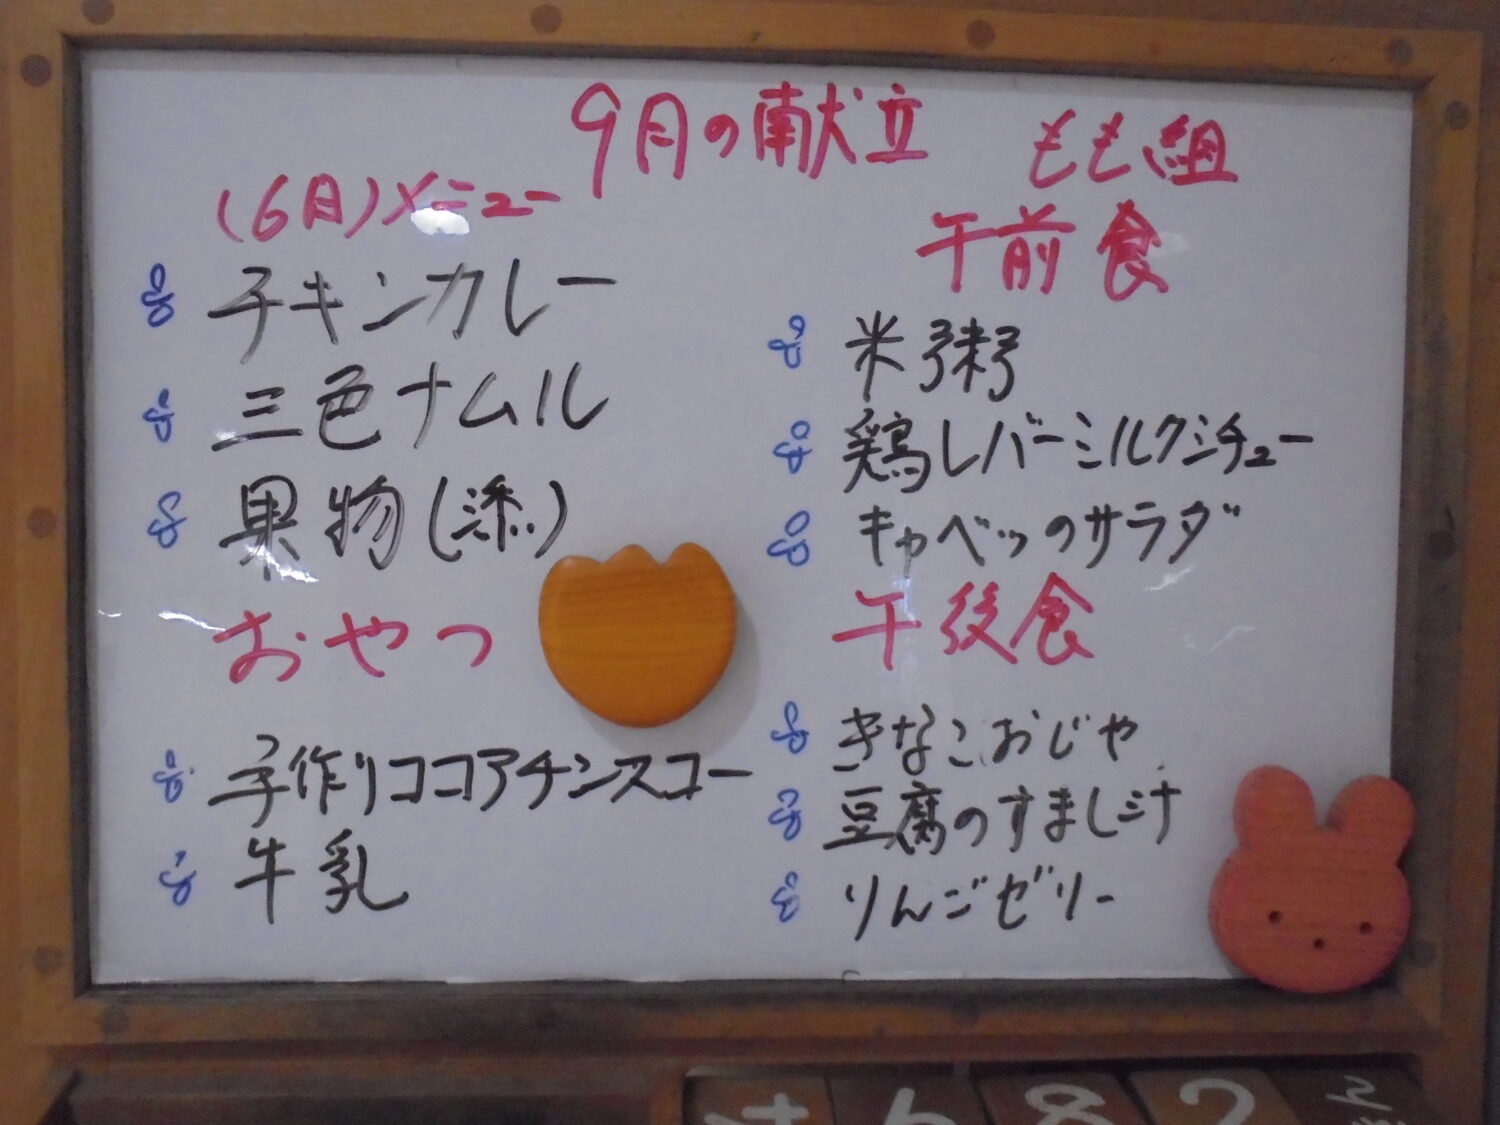 9月の献立
(6月)メニュー
チキンカレー
三色ナムル
果物(添)
おやつ
手作りココアチンスコー
牛乳
もも組
午前食
米粥
鶏レバーミルクシチュー
キャベツのサラダ
午後食
きなこおじや
豆腐のすまし汁
りんごゼリー